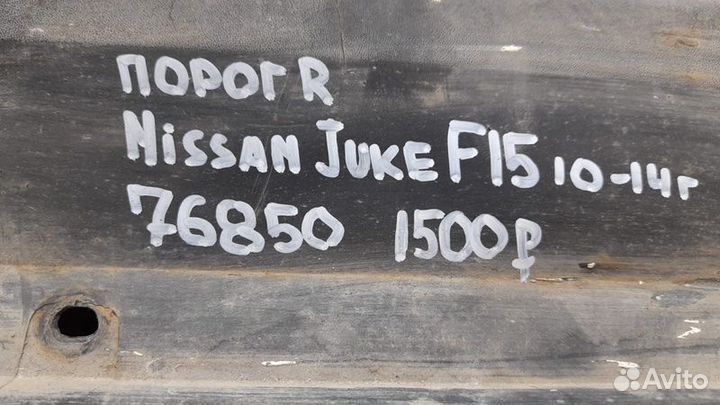 ПОРОГ R
NISSAN JUKE F15 10-14г
76850 1500₽
Avito